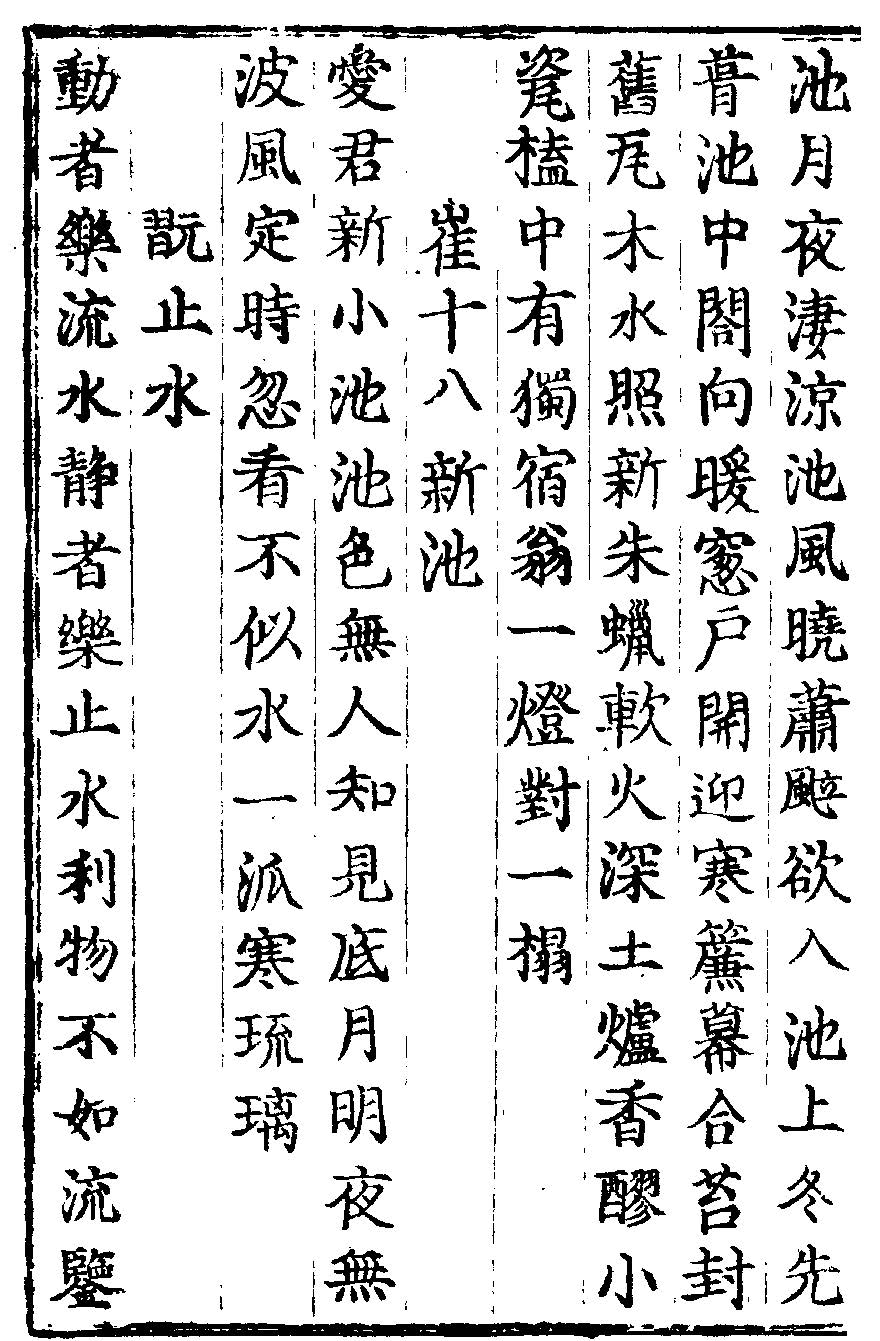 池月夜淒涼池風曉蕭颯欲入池上冬先
葺池中閤向暖窻戶開迎寒簾幕合苔封
舊瓦木水照新朱蠟軟火深土爐香醪小
瓷榼中有獨宿翁一燈對一榻
崔十八新池
愛君新小池池色無人知見底月明夜無
波風定時忽看不似水一泒寒琉璃
翫止水
動者樂流水静者樂止水利物不如流鑒